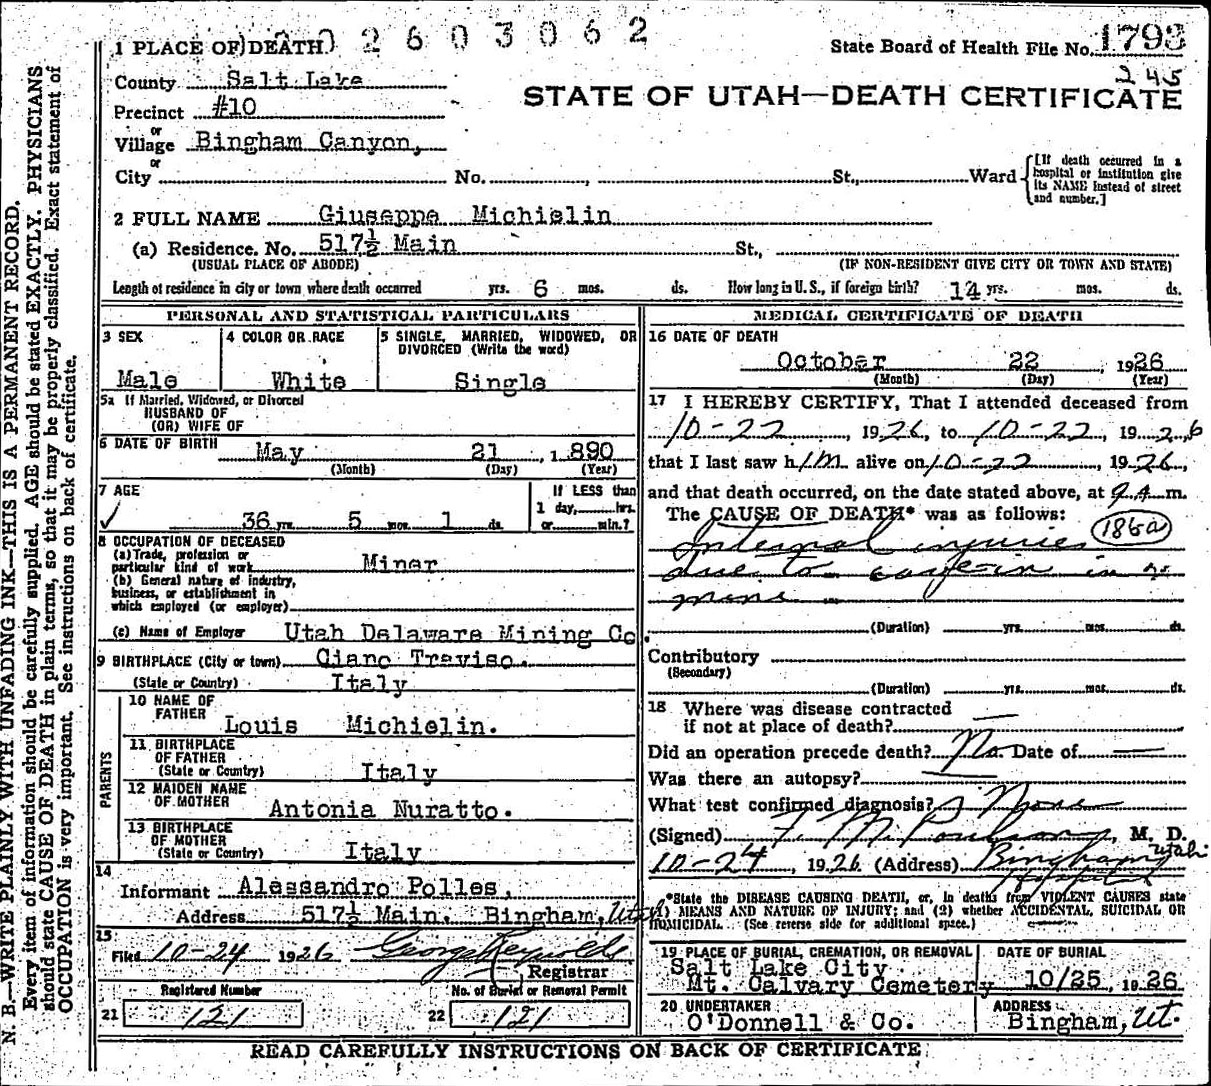 2603062
State Board of Health File No. 1793
245
1 PLACE OF DEATH
County Salt Lake
STATE OF UTAH—DEATH CERTIFICATE
Precinct #10
or
Village Bingham Canyon,
or
City No. , St., Ward
[If death occurred in a hospital or institution give its NAME instead of street and number.]
2 FULL NAME Giuseppe Michielin
(a) Residence. No. 517½ Main St.,
(USUAL PLACE OF ABODE) (IF NON-RESIDENT GIVE CITY OR TOWN AND STATE)
Length of residence in city or town where death occurred yrs. 6 mos. ds. How long in U.S., if foreign birth? 14 yrs. mos. ds.
PERSONAL AND STATISTICAL PARTICULARS
3 SEX
Male
4 COLOR OR RACE
White
5 SINGLE, MARRIED, WIDOWED, OR DIVORCED (Write the word)
Single
5a If Married, Widowed, or Divorced
HUSBAND OF
(OR) WIFE OF
6 DATE OF BIRTH May 21 , 1 890
(Month) (Day) (Year)
7 AGE
✓ 36 yrs. 5 mos. 1 ds.
If LESS than
1 day, hrs.
or min.?
8 OCCUPATION OF DECEASED
(a) Trade, profession or
particular kind of work Miner
(b) General nature of industry,
business, or establishment in
which employed (or employer)
(c) Name of Employer Utah Delaware Mining Co.
9 BIRTHPLACE (City or town) Ciano Treviso.
(State or Country) Italy
PARENTS
10 NAME OF
FATHER Louis Michielin.
11 BIRTHPLACE
OF FATHER
(State or Country) Italy
12 MAIDEN NAME
OF MOTHER Antonia Nuratto.
13 BIRTHPLACE
OF MOTHER
(State or Country) Italy
14
Informant Alessandro Polles,
Address 517½ Main. Bingham, Utah
15
Filed 10-24 1926 George Reynolds
Registrar
Registered Number
No. of Burial or Removal Permit
21 121
22 121
MEDICAL CERTIFICATE OF DEATH
16 DATE OF DEATH
October 22 , 1926
(Month) (Day) (Year)
17 I HEREBY CERTIFY, That I attended deceased from
10-22, 1926, to 10-22, 1926
that I last saw him alive on 10-22, 1926,
and that death occurred, on the date stated above, at 9 A m.
The CAUSE OF DEATH* was as follows:
186a
Internal injuries
due to cave-in in
mine
(Duration) yrs. mos. ds.
Contributory
(Secondary)
(Duration) yrs. mos. ds.
18 Where was disease contracted
if not at place of death? —
Did an operation precede death? No. Date of —
Was there an autopsy? —
What test confirmed diagnosis? None
(Signed) F. M. Poulson, M. D.
10-24, 1926 (Address) Bingham Utah
Hospital
*State the DISEASE CAUSING DEATH, or, in deaths from VIOLENT CAUSES state
(1) MEANS AND NATURE OF INJURY; and (2) whether ACCIDENTAL, SUICIDAL OR
HOMICIDAL. (See reverse side for additional space.)
19 PLACE OF BURIAL, CREMATION, OR REMOVAL
Salt Lake City
Mt. Calvary Cemetery
DATE OF BURIAL
10/25, 1926
20 UNDERTAKER
O'Donnell & Co.
ADDRESS
Bingham, Ut.
READ CAREFULLY INSTRUCTIONS ON BACK OF CERTIFICATE
N. B.—WRITE PLAINLY WITH UNFADING INK—THIS IS A PERMANENT RECORD.
Every item of information should be carefully supplied. AGE should be stated EXACTLY. PHYSICIANS
should state CAUSE OF DEATH in plain terms, so that it may be properly classified. Exact statement of
OCCUPATION is very important. See instructions on back of certificate.